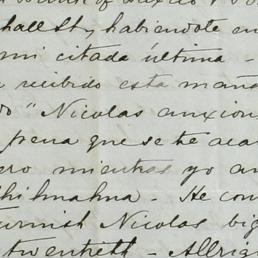 hall St, habiendote en
mi citada última -
recibido esta maña
do "Nicolas anxion
pena que se te aca
ero mientras yo an
hihuahua - He con
urnish Nicolas big
twentieth - Allrig